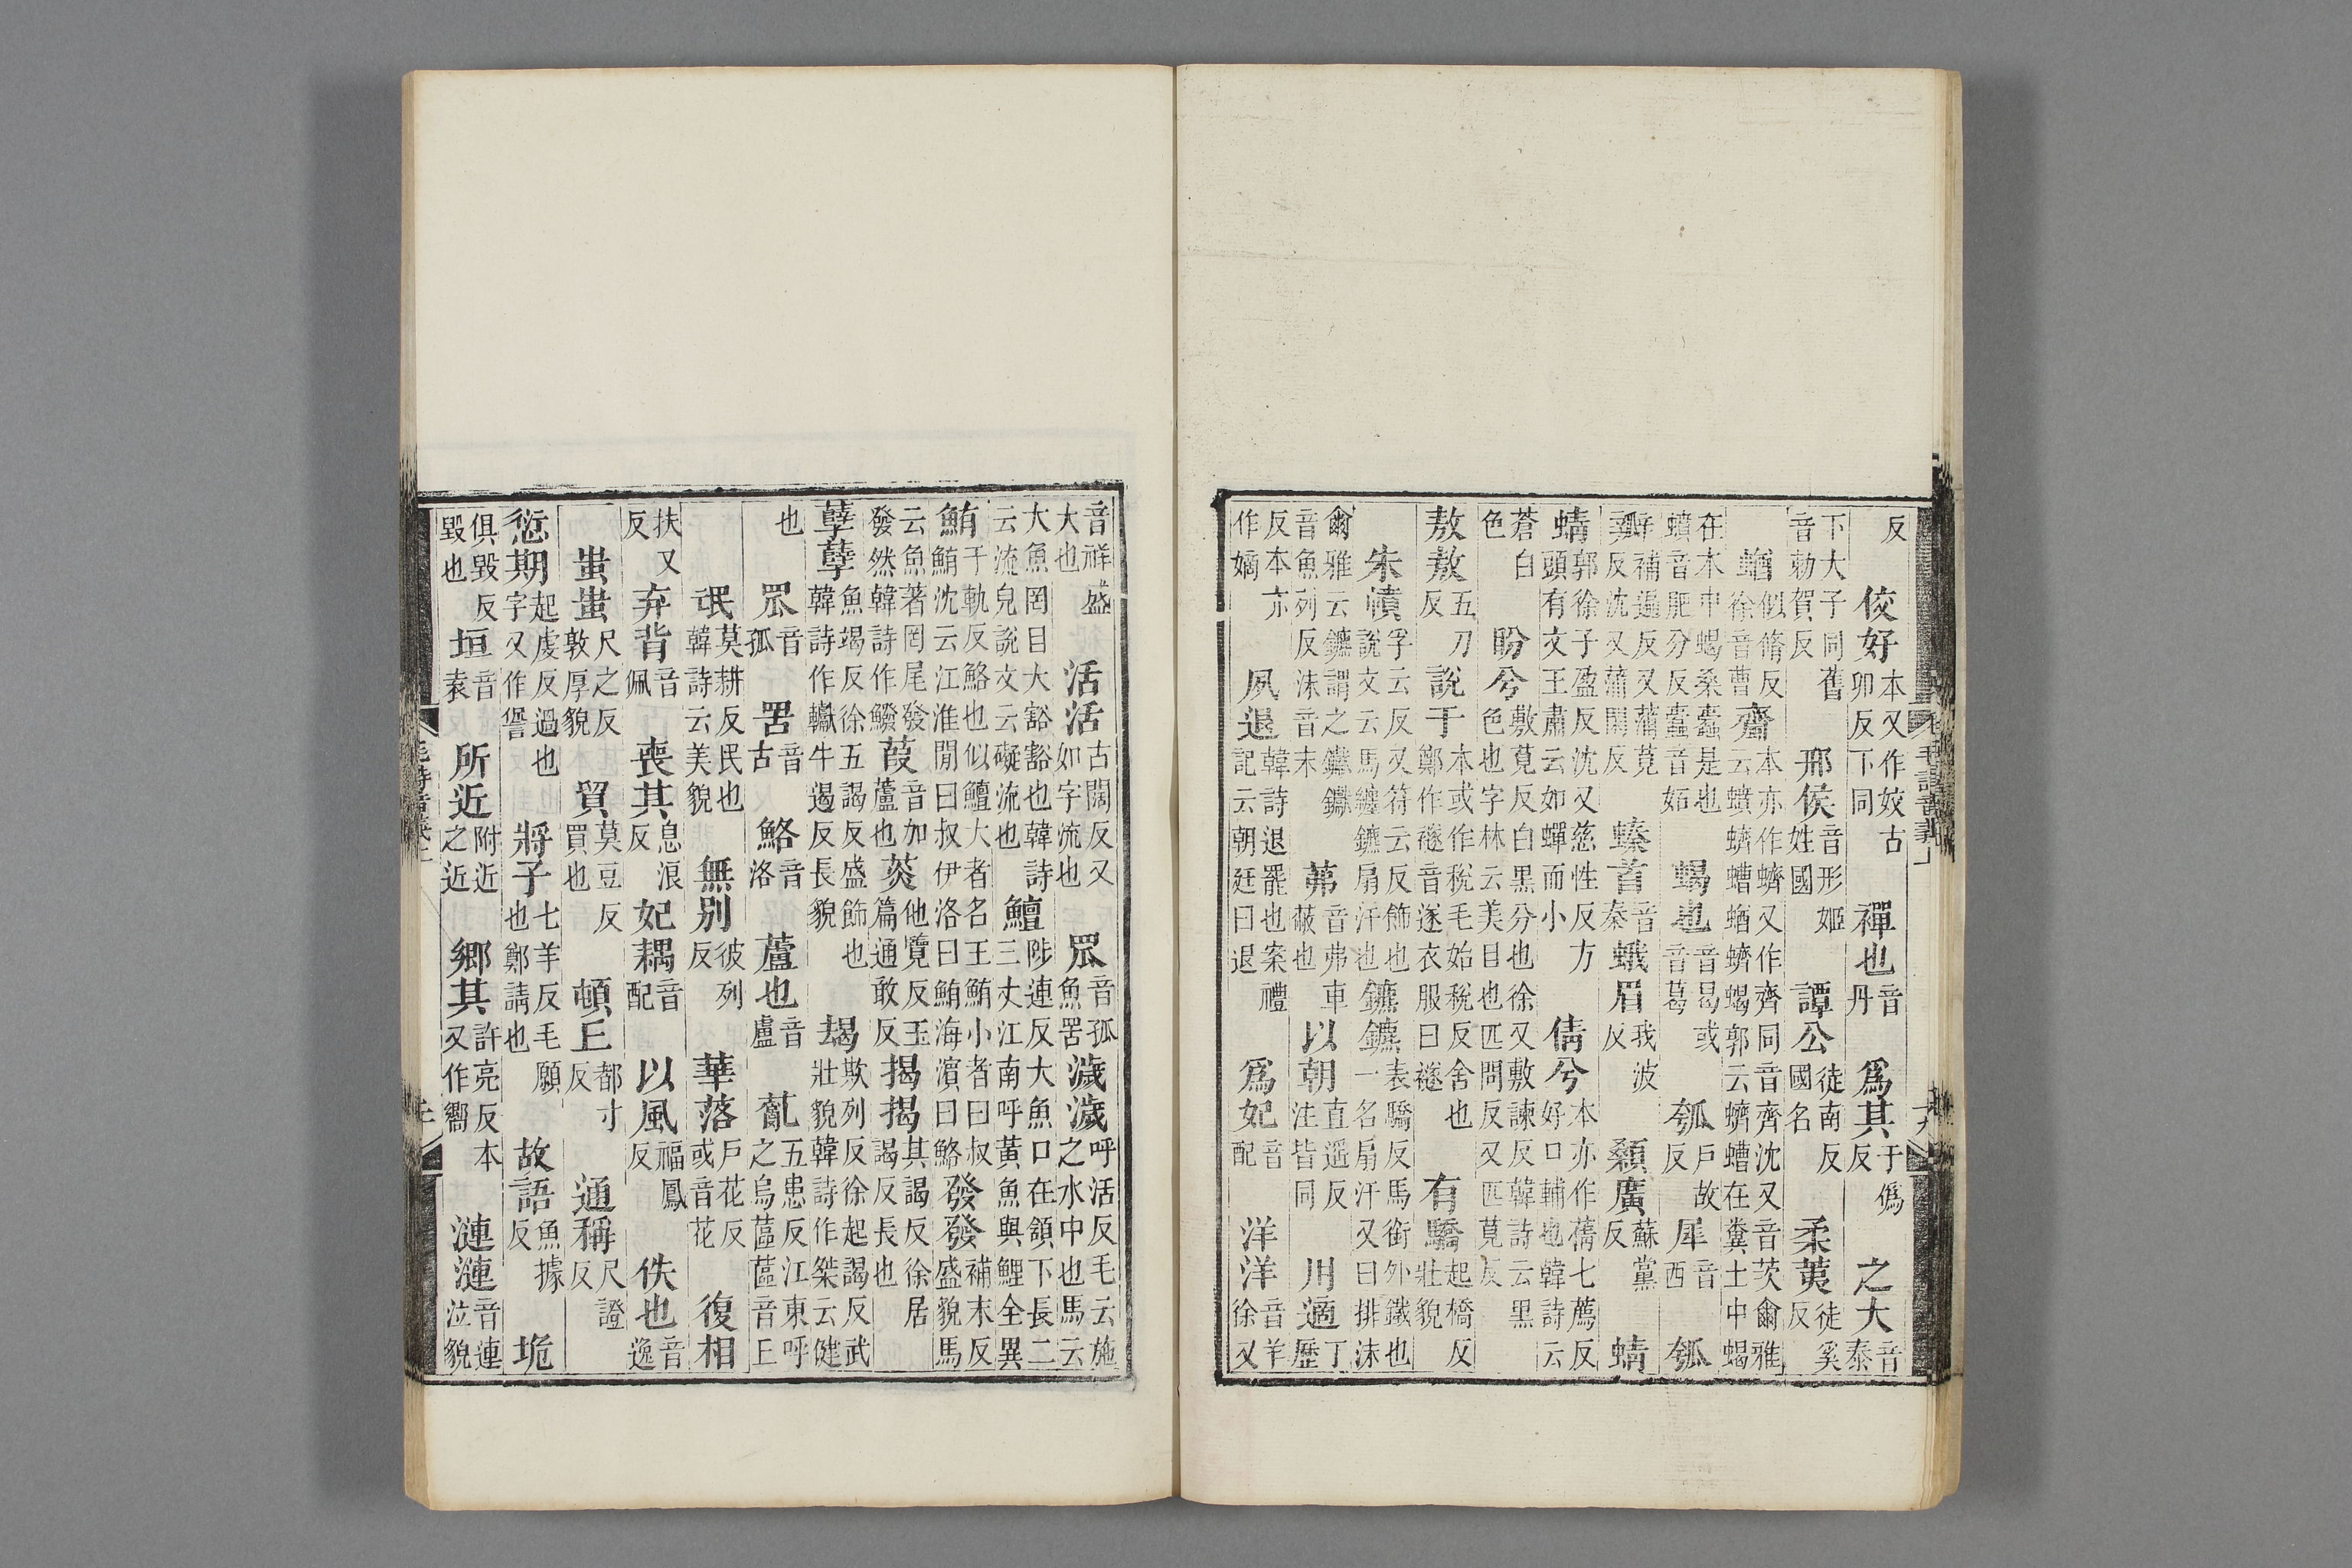 反佼好本又作姣古卯反下同襌也音丹爲其于僞反之大音泰
下大子同舊音勅賀反邢侯音形姬姓國譚公徒南反國名柔荑徒奚反
蝤似脩反徐音曹齊本亦作蠐又作齊同音齊沈又音茨爾雅云蟦蠐螬蝤蠐蝎郭云蠐螬在糞土中蝎
在木中蝎桑蠹是也蟦音肥分反蠹音妬蝎也音曷或音葛瓠戶故反犀音西瓠
瓣補遍反又蒲莧反沈又蒲閑反螓首音秦蛾眉我波反顙廣蘇黨反蜻
蜻郭徐子盈反沈又慈性反方頭有文王肅云如蟬而小倩兮本亦作蒨七薦反好口輔也韓詩云
蒼白色盼兮敷莧反白黑分也徐又敷諫反韓詩云黑色也字林云美目也匹問反又匹莧反
敖敖五刀反說于本或作稅毛始稅反舍也鄭作襚音遂衣服曰襚有驕起橋反壯貌
朱幩孚云反又符云反飾也說文云馬纏鑣扇汗也鑣鑣表驕反馬銜外鐵也一名扇汗又曰排沫
爾雅云鑣謂之钀钀音魚列反沫音末茀音弗車蔽也以朝直遥反注皆同用適丁歷
反本亦作嫡夙退韓詩退罷也案禮記云朝廷曰退爲妃音配洋洋音羊徐又
音祥盛大也活活古闊反又如字流也罛音孤魚罟濊濊呼活反毛云施之水中也馬云
大魚罔目大豁豁也韓詩云流皃說文云礙流也鱣陟連反大魚口在頷下長二三丈江南呼黃魚與鯉全異
鮪于軌反鮥也似鱣大者名王鮪小者曰叔鮪沈云江淮閒曰叔伊洛曰鮪海濱曰鮥發發補末反盛貌馬
云魚著罔尾發發然韓詩作鱍葭音加蘆也菼他覽反玉篇通敢反揭揭其謁反徐居謁反長也
孽孽魚竭反徐五謁反盛飾也韓詩作钀牛遏反長貌朅欺列反徐起謁反武壯貌韓詩作桀云健
也罛音孤罟音古鮥音洛蘆也音盧薍五患反江東呼之烏蓲蓲音丘
氓莫耕反民也韓詩云美貌無別彼列反華落戶花反或音花復相
扶又反弃背音佩喪其息浪反妃耦音配以風福鳳反佚也音逸
蚩蚩尺之反敦厚貌貿莫豆反買也頓丘都寸反通稱尺證反
愆期起虔反過也字又作諐將子七羊反毛願也鄭請也故語魚據反垝
俱毀反毀也垣音袁所近附近之近鄉其許亮反本又作嚮漣漣音連泣貌